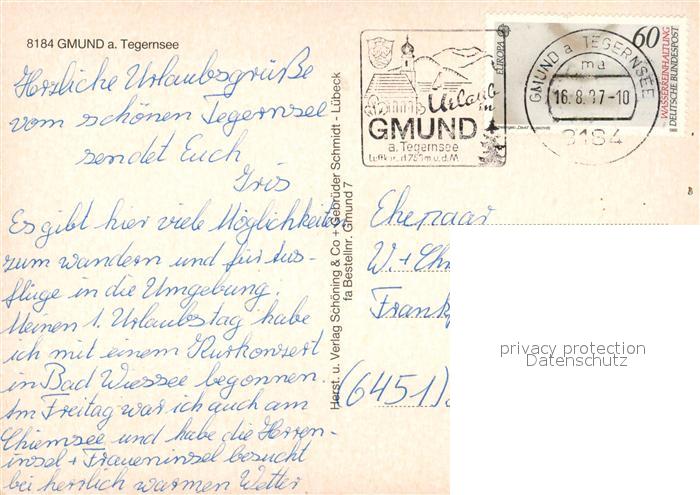 8184 GMUND a. Tegernsee
Herzliche Urlaubsgrüße
vom schönen Tegernsee
sendet Euch
Iris
Es gibt hier viele Möglichkeiten
zum wandern und für Aus-
flüge in die Umgebung.
Meinen 1. Urlaubstag habe
ich mit einem Kurkonzert
in Bad Wiessee begonnen.
Am Freitag war ich auch am
Chiemsee und habe die Herren-
insel + Fraueninsel besucht
bei herrlich warmen Wetter
Herst. u. Verlag Schöning & Co + Gebrüder Schmidt - Lübeck
fa Bestellnr. Gmund 7
Urlaub
in
GMUND
a. Tegernsee
EUROPA
60
WASSERREINHALTUNG
DEUTSCHE BUNDESPOST
GMUND a TEGERNSEE
ma
16.8.87-10
8184
Ehepaar
W. + Ch
Frankf
(6451)
privacy protection
Datenschutz